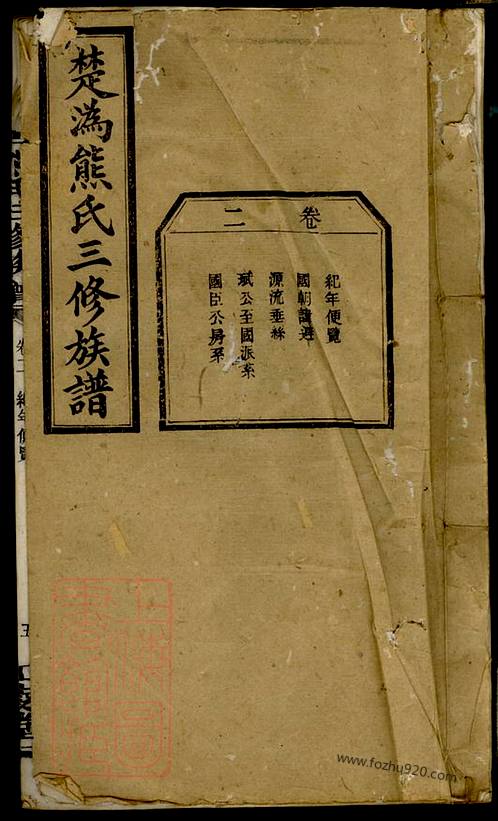 楚溈熊氏三修族譜
卷二
紀年便覽
國朝諱避
源流垂絲
斌公至國派系
國臣公房系
卷二 紀年便覽
五
www.fozhu920.com